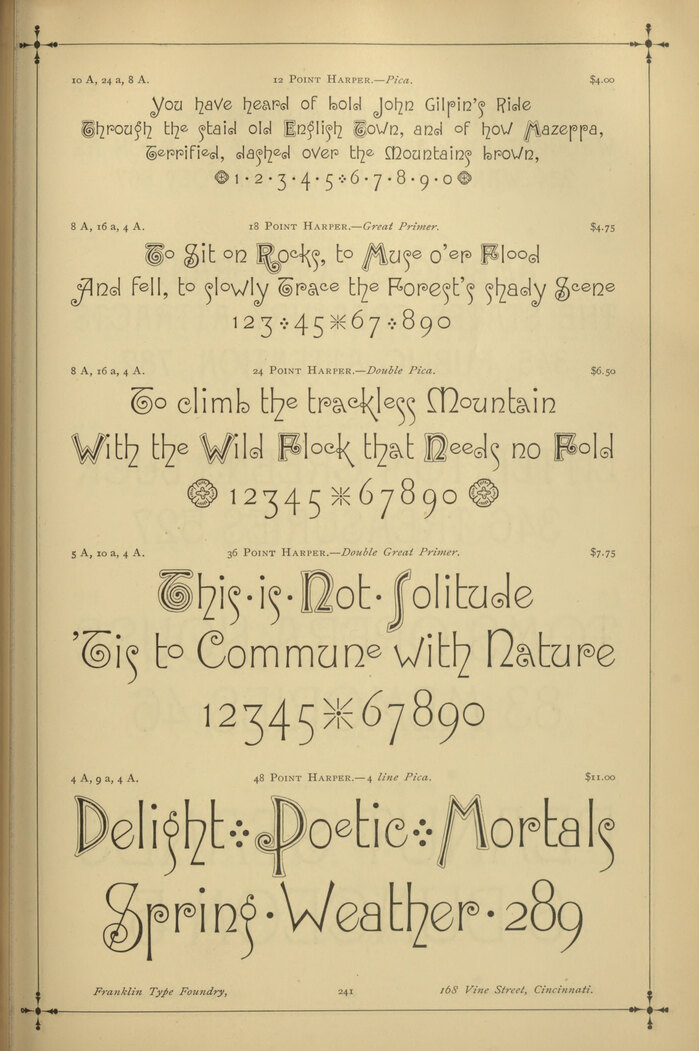 10 A, 24 a, 8 A. 12 Point Harper.—Pica. $4.00
You have heard of bold John Gilpin's Ride
Through the staid old English Town, and of how Mazeppa,
Terrified, dashed over the Mountains brown,
1·2·3·4·5·6·7·8·9·0
8 A, 16 a, 4 A. 18 Point Harper.—Great Primer. $4.75
To Sit on Rocks, to Muse o'er Flood
And fell, to slowly Trace the Forest's shady Scene
123 45 67 890
8 A, 16 a, 4 A. 24 Point Harper.—Double Pica. $6.50
To climb the trackless Mountain
With the Wild Flock that Needs no Fold
12345 67890
5 A, 10 a, 4 A. 36 Point Harper.—Double Great Primer. $7.75
This·is·Not·Solitude
'Tis to Commune with Nature
12345 67890
4 A, 9 a, 4 A. 48 Point Harper.—4 line Pica. $11.00
Delight Poetic Mortals
Spring·Weather·289
Franklin Type Foundry, 241 168 Vine Street, Cincinnati.